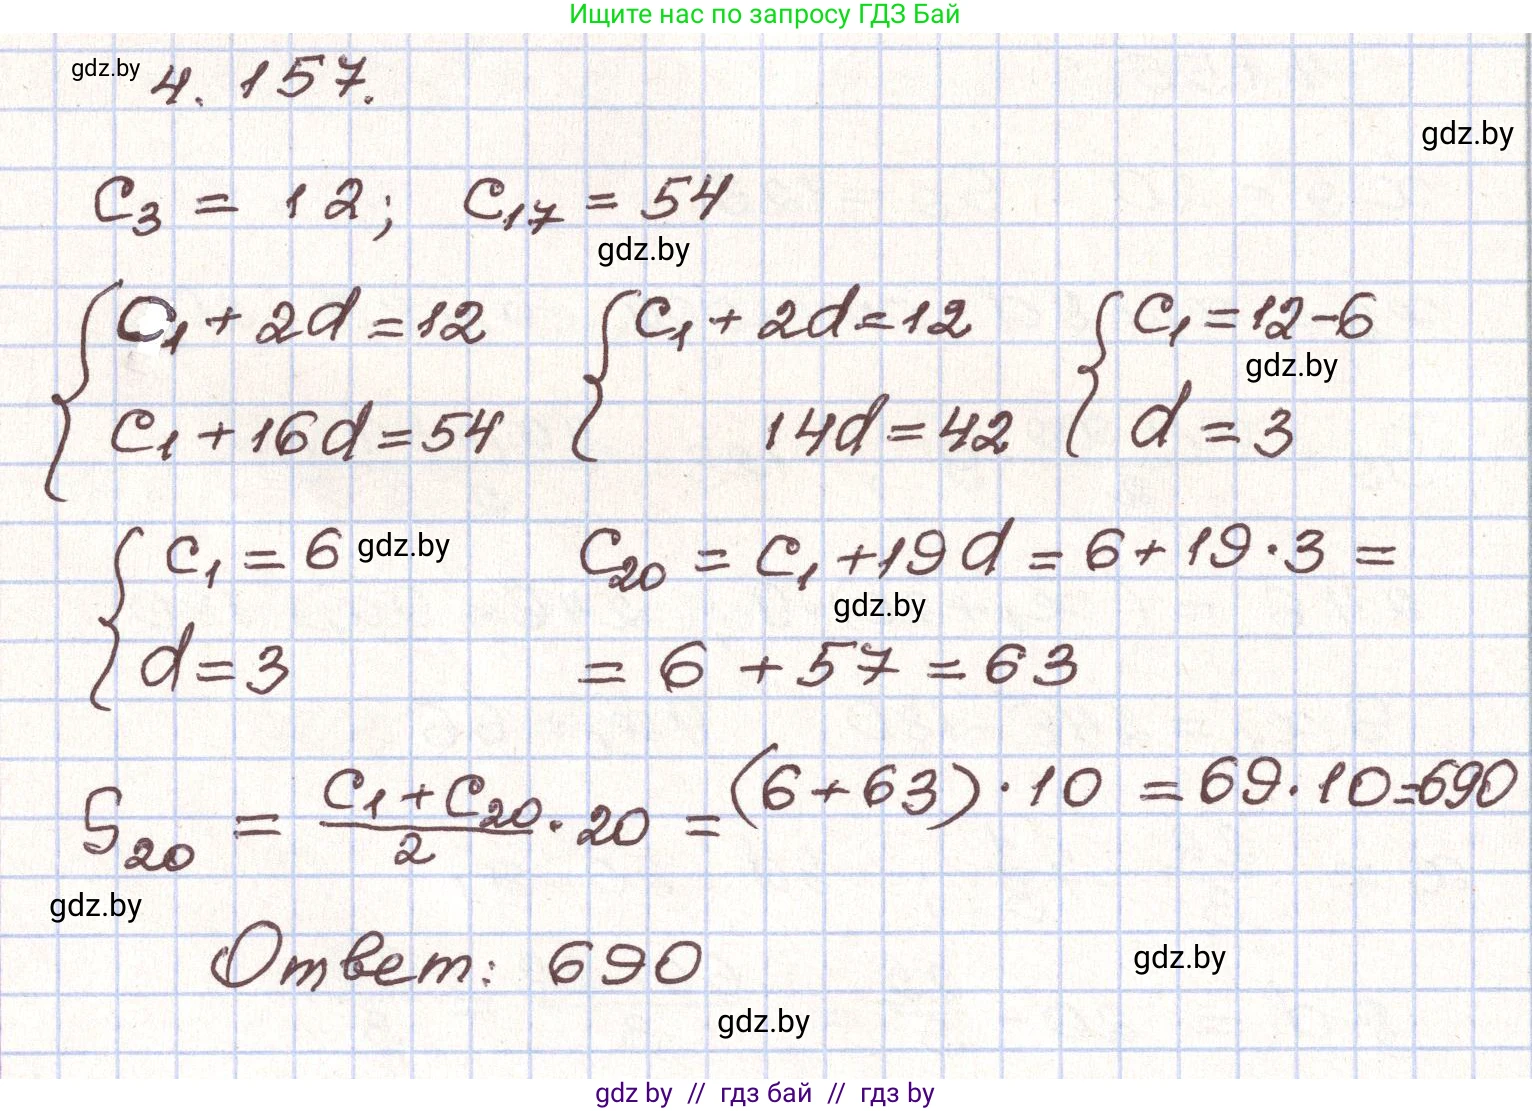 Ищите нас по запросу ГДЗ Бай
gdz.by 4. 157.
gdz.by
C₃ = 12; C₁₇ = 54
gdz.by
{ C₁ + 2d = 12 { C₁ + 2d = 12 { C₁ = 12 - 6
gdz.by
C₁ + 16d = 54 14d = 42 d = 3
{ C₁ = 6 gdz.by C₂₀ = C₁ + 19d = 6 + 19 · 3 =
gdz.by
d = 3 = 6 + 57 = 63
S₂₀ = (C₁ + C₂₀)/2 · 20 = (6 + 63) · 10 = 69 · 10 = 690
gdz.by
Ответ: 690
gdz.by
gdz.by
gdz by // гдз бай // гдз by